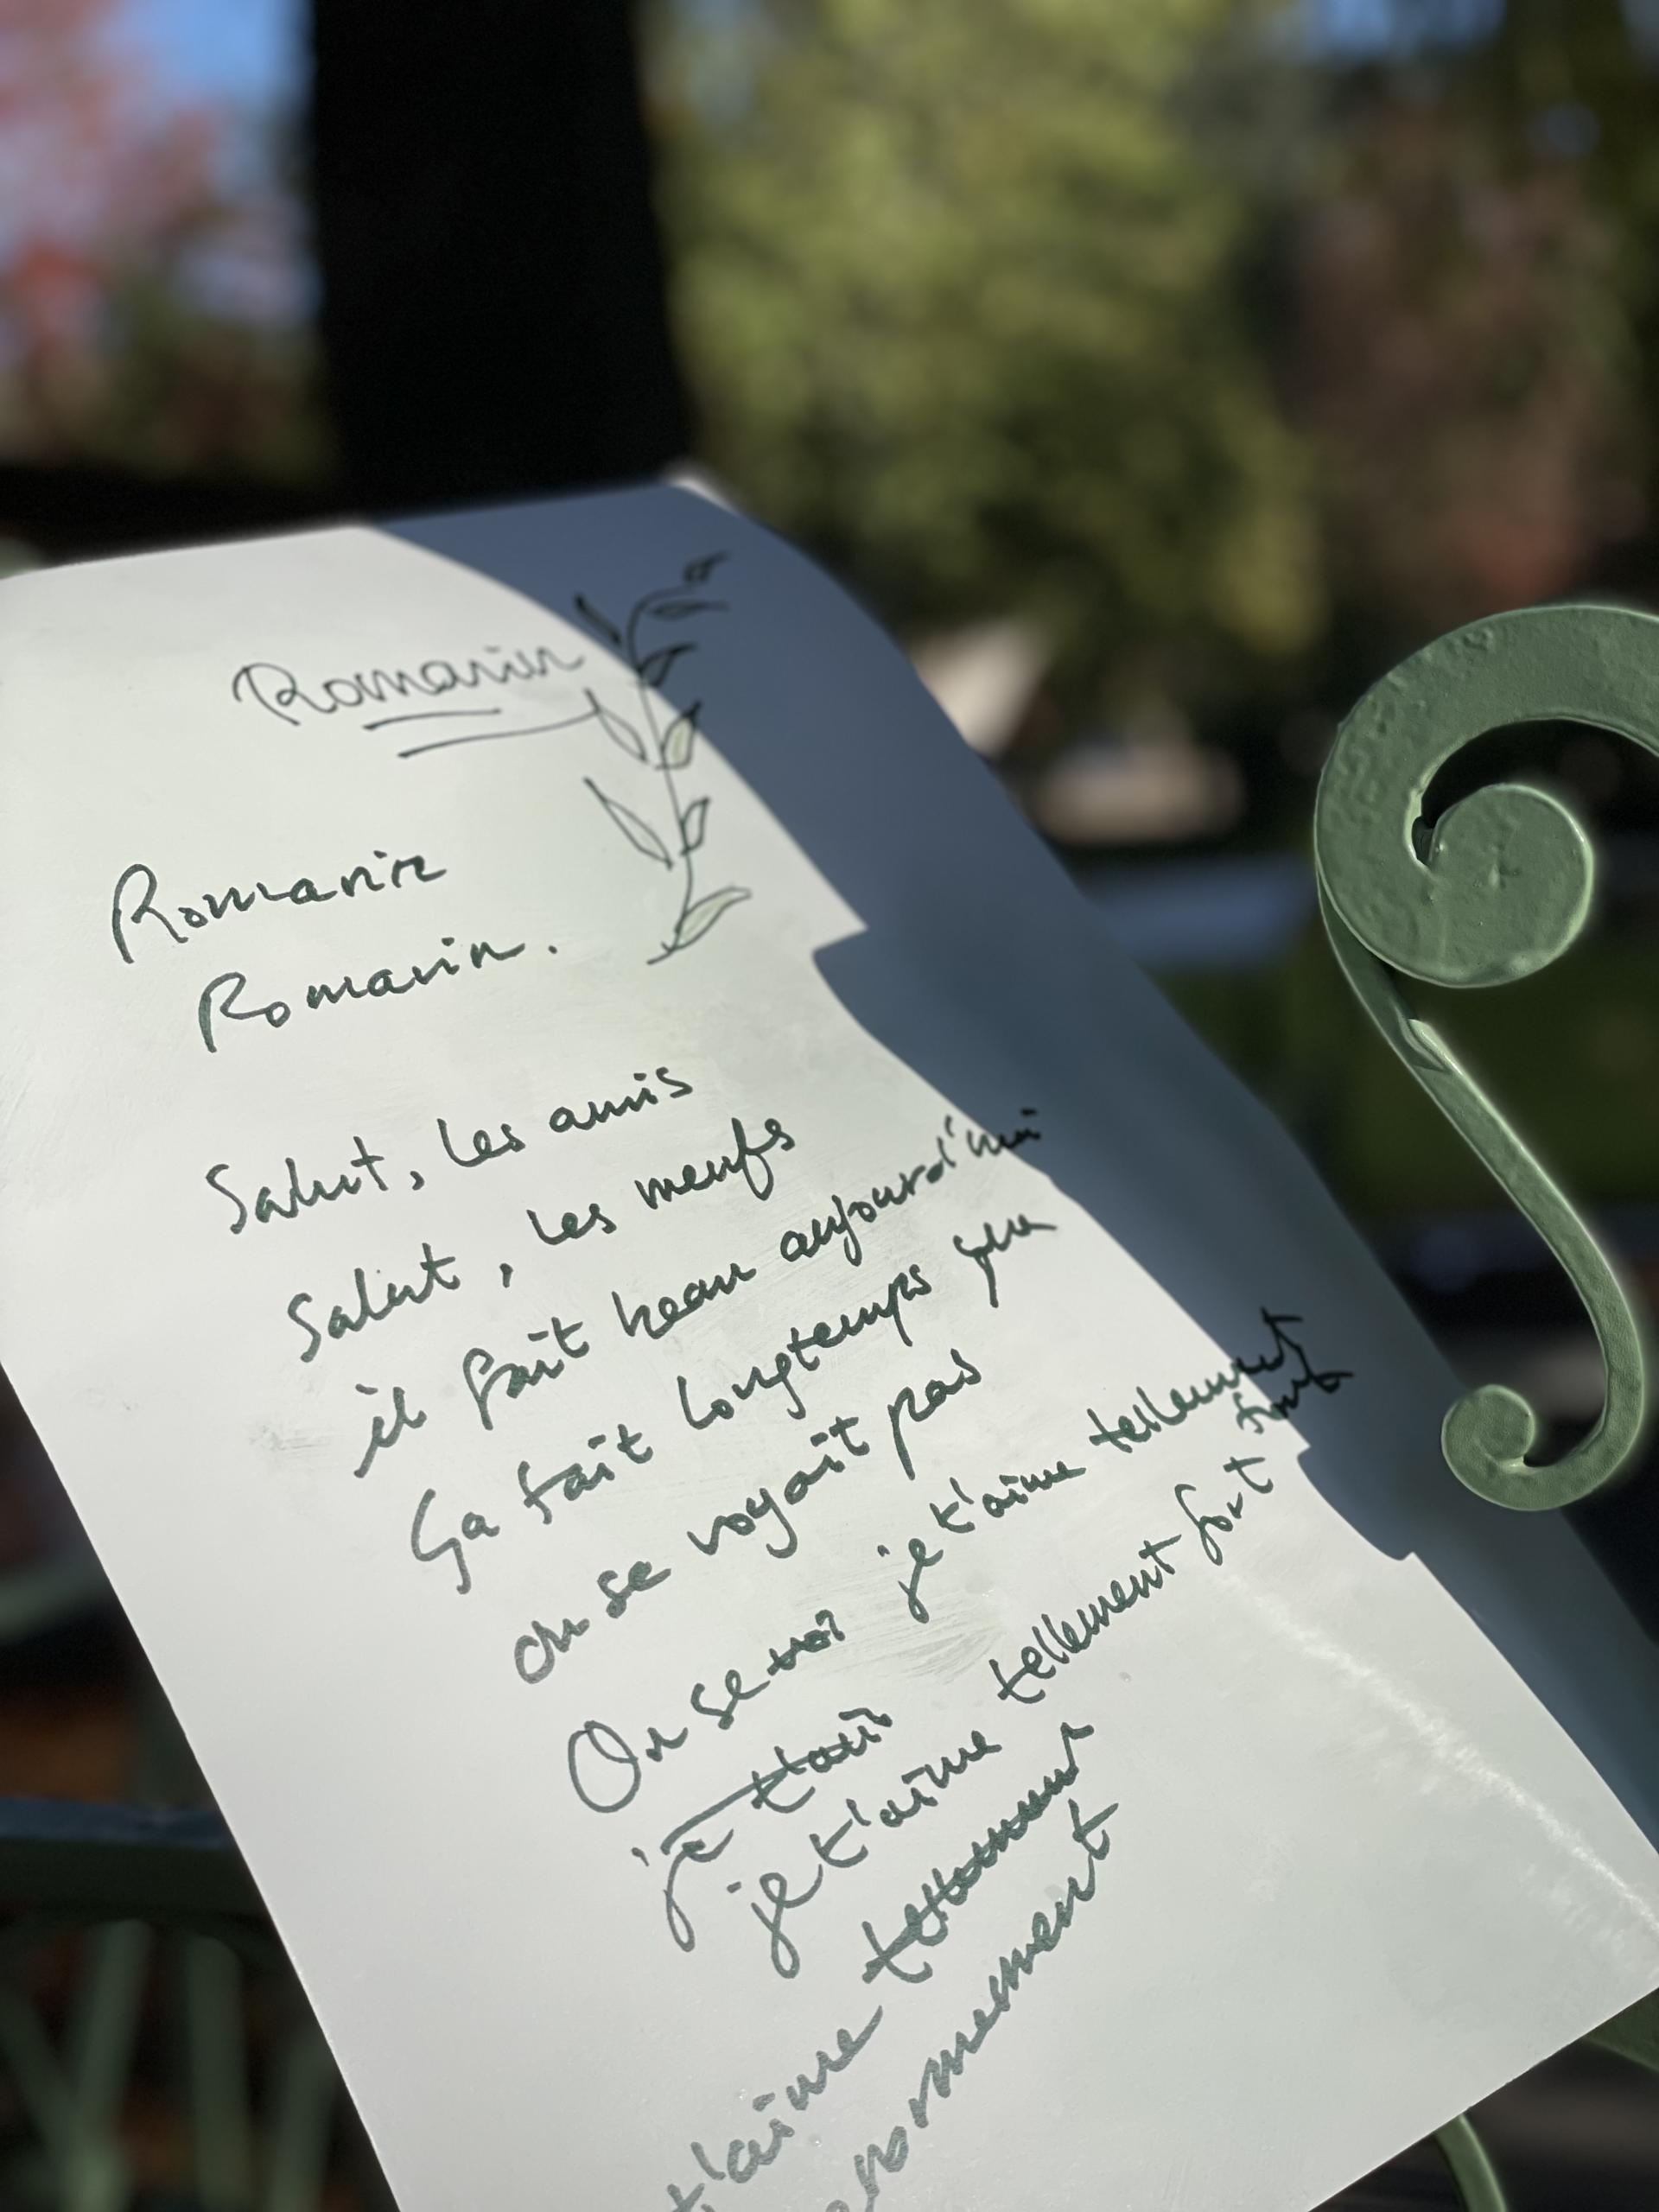 Romarin
Romarin
Romarin.
Salut, les amis
Salut, les meufs
il fait beau aujourd'hui
Ça fait longtemps que
on se voyait pas
On se voi je t'aime tellement
fort
je t'aime tellement fort
t'aime tellement